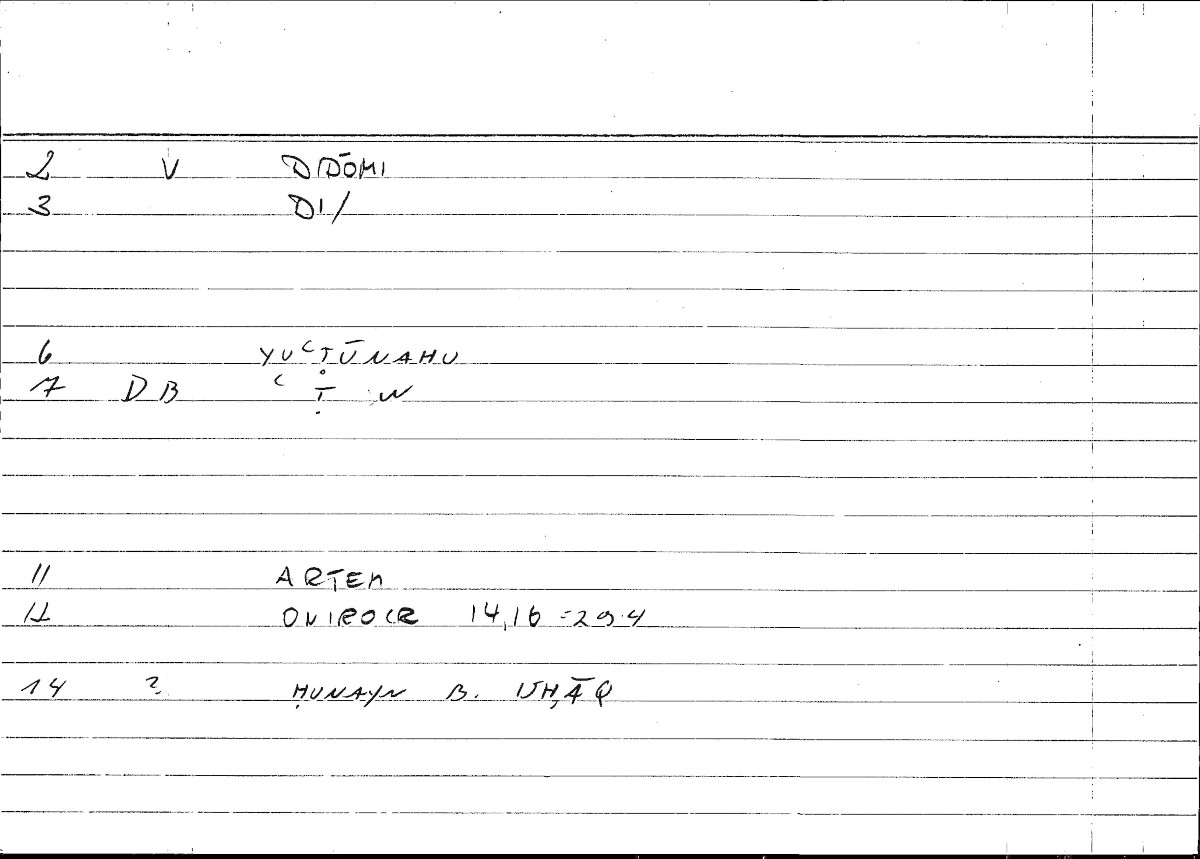 2 V DIDŌMI
3 DI/
6 YUʿṬŪNAHU
7 DB ʿ Ṭ W
11 ARTEM
12 ONIROCR 14,16 = 29.4
14 ? ḤUNAYN B. ISḤĀQ